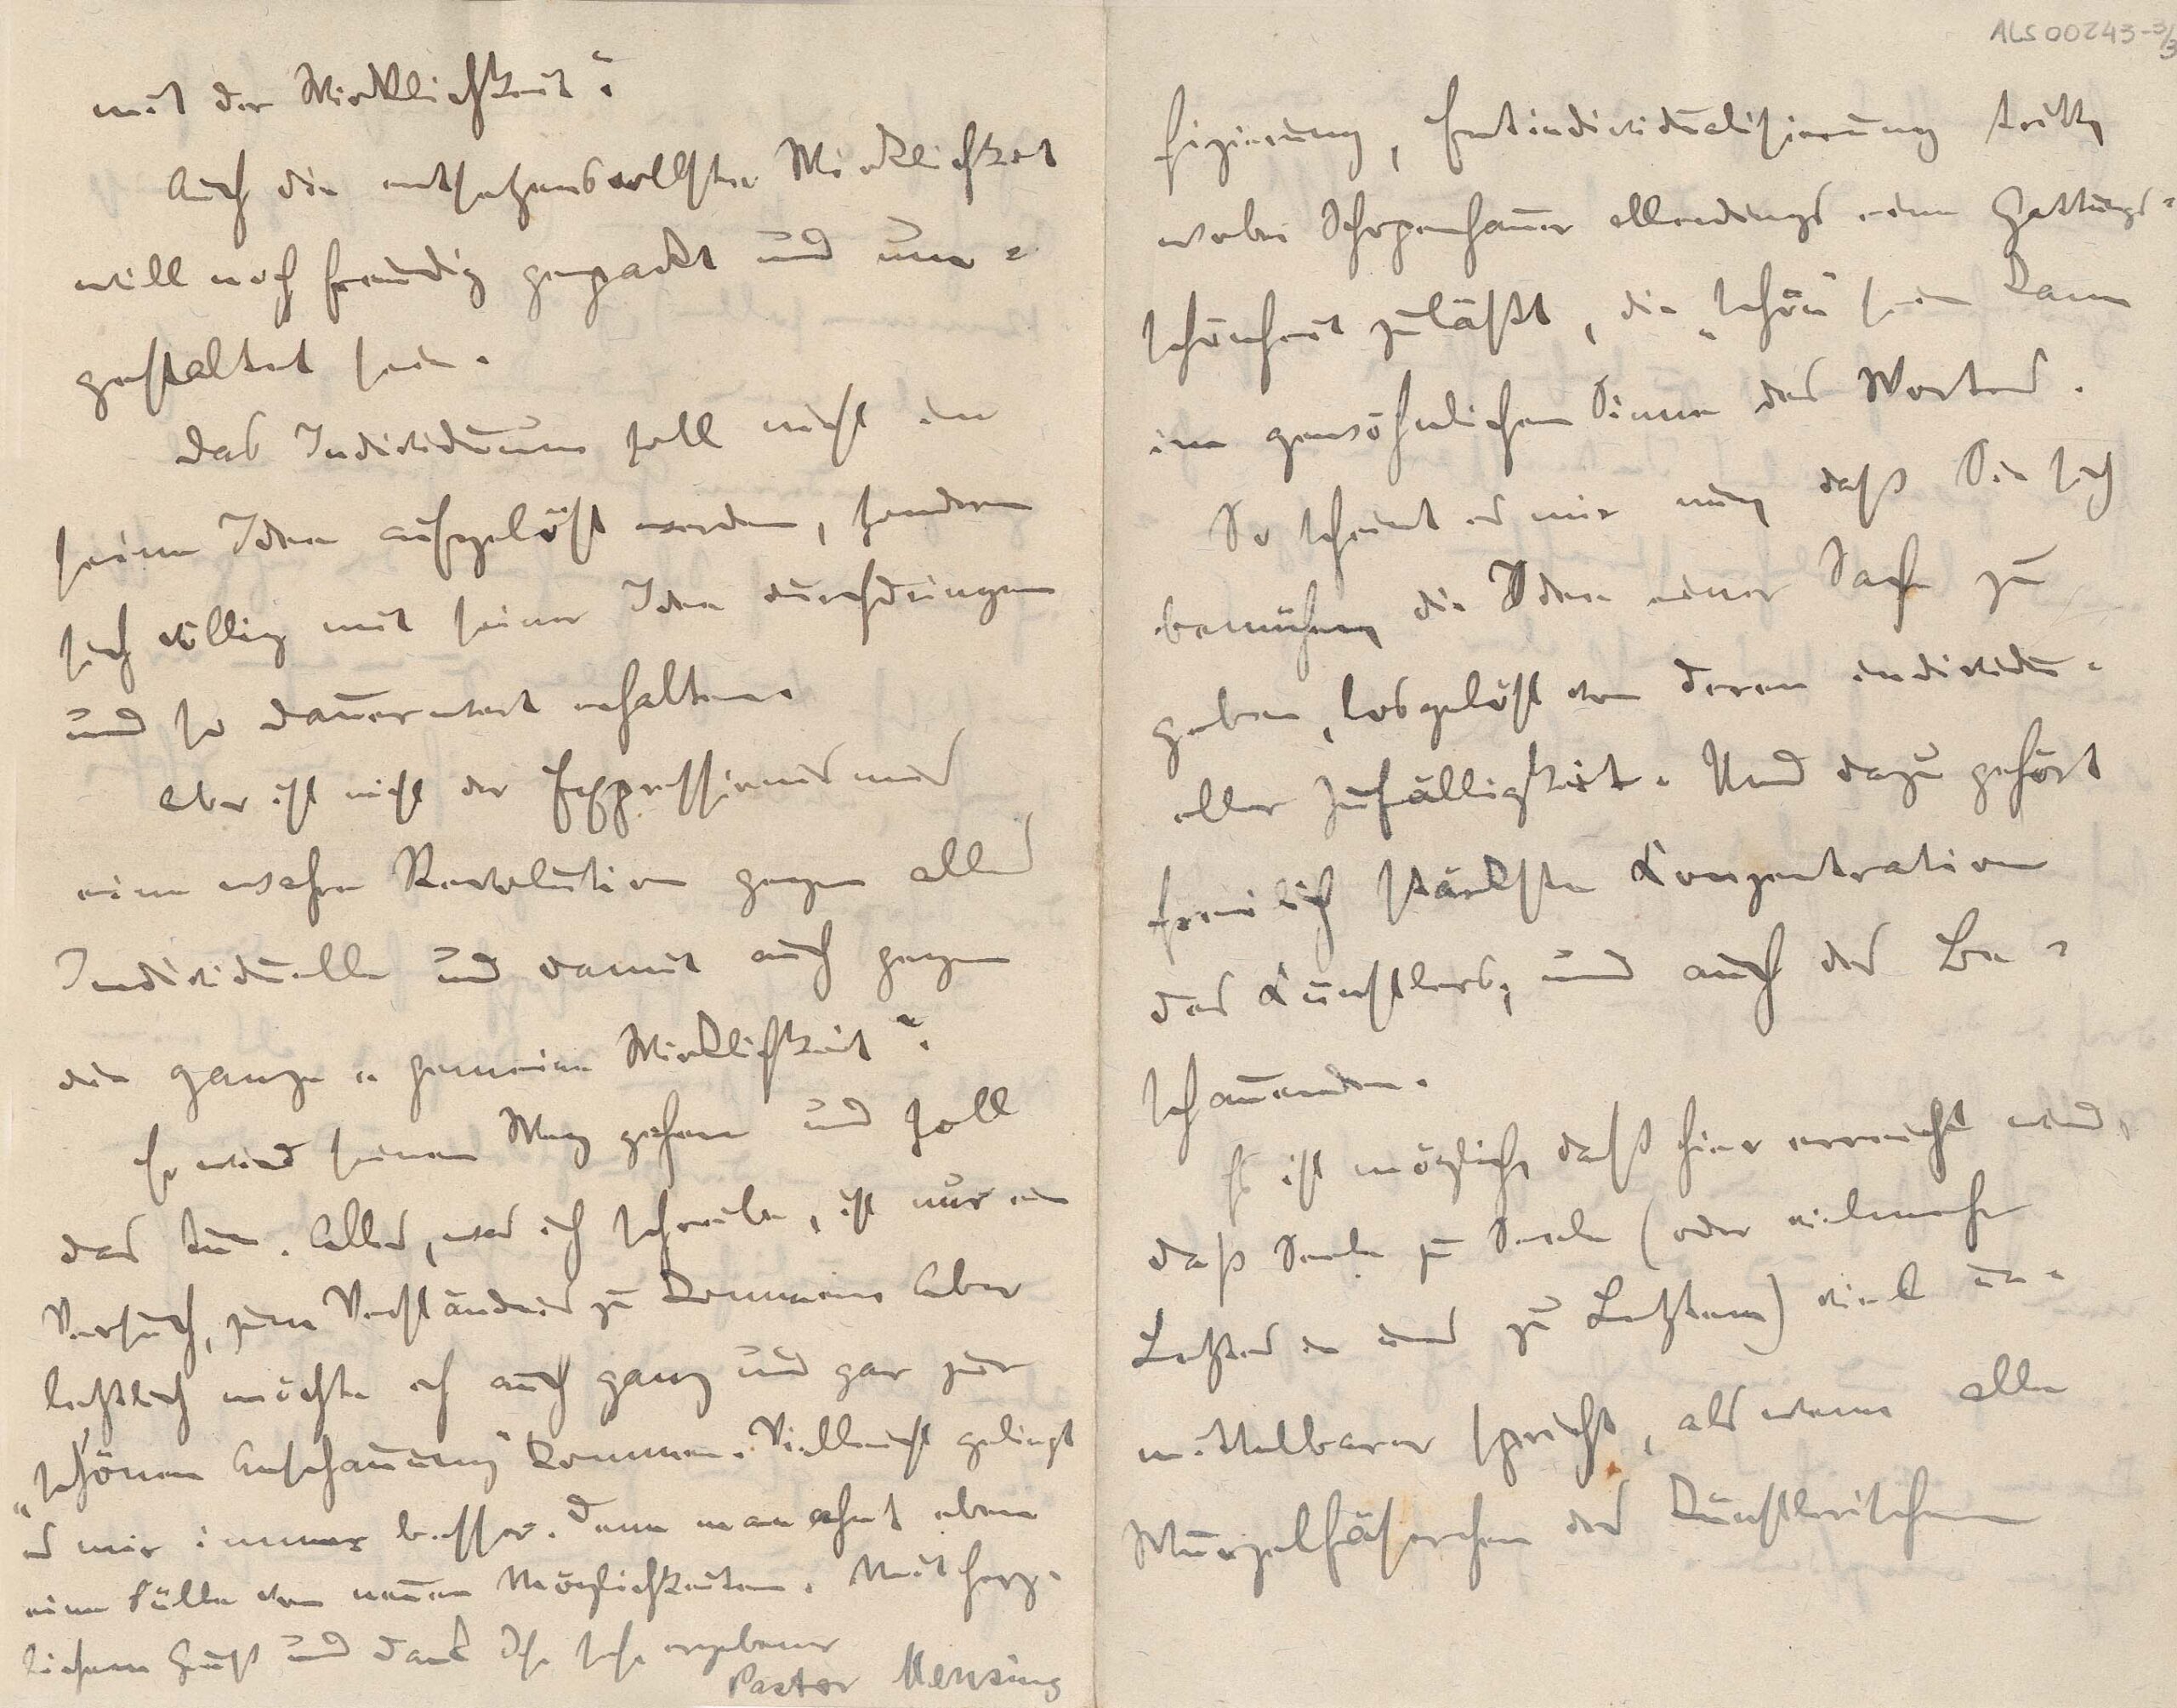 mit der Wirklichkeit?
Auch die entsetzensvollste Wirklichkeit
will noch freudig gepackt und um=
gestaltet sein.
Das Individuum soll nicht in
seine Idee aufgelöst werden, sondern
sich völlig mit seiner Idee durchdringen
und so dauerwert erhalten.
Aber ist nicht der Expressionismus
eine wahre Revolution gegen alles
Individuelle und damit auch gegen
die ganze „gemeine Wirklichkeit“?
Er wird seinen Weg gehen und soll
das tun. Alles, was ich schreibe, ist nur ein
Versuch, zum Verständnis zu kommen. Aber
letztlich möchte ich auch ganz und gar zur
„schönen Anschauung“ kommen. Vielleicht gelingt
es mir immer besser. Denn man ahnt eben
eine Fülle von neuen Möglichkeiten. Mit herz=
lichem Gruß und Dank Ihr sehr ergebener
Pastor Mensing
ALS 00243-3/3
fizierung, Entindividualisierung tritt,
wobei Schopenhauer allerdings eine Gattungs=
schönheit zuläßt, die „schön“ sein kann
im gewöhnlichen Sinne des Wortes.
So scheint es mir nun, daß Sie sich
bemühen, die Idee einer Sache zu
geben, losgelöst von deren individu=
eller Zufälligkeit. Und dazu gehört
freilich stärkste Konzentration
des Künstlers, und auch des Be=
schauenden.
Es ist möglich, daß hier erreicht wird,
daß Seele zu Seele (oder vielmehr
Letztes in uns zu Letztem) viel un=
mittelbarer spricht, als wenn alle
Wurzelfäserchen des Künstlerischen